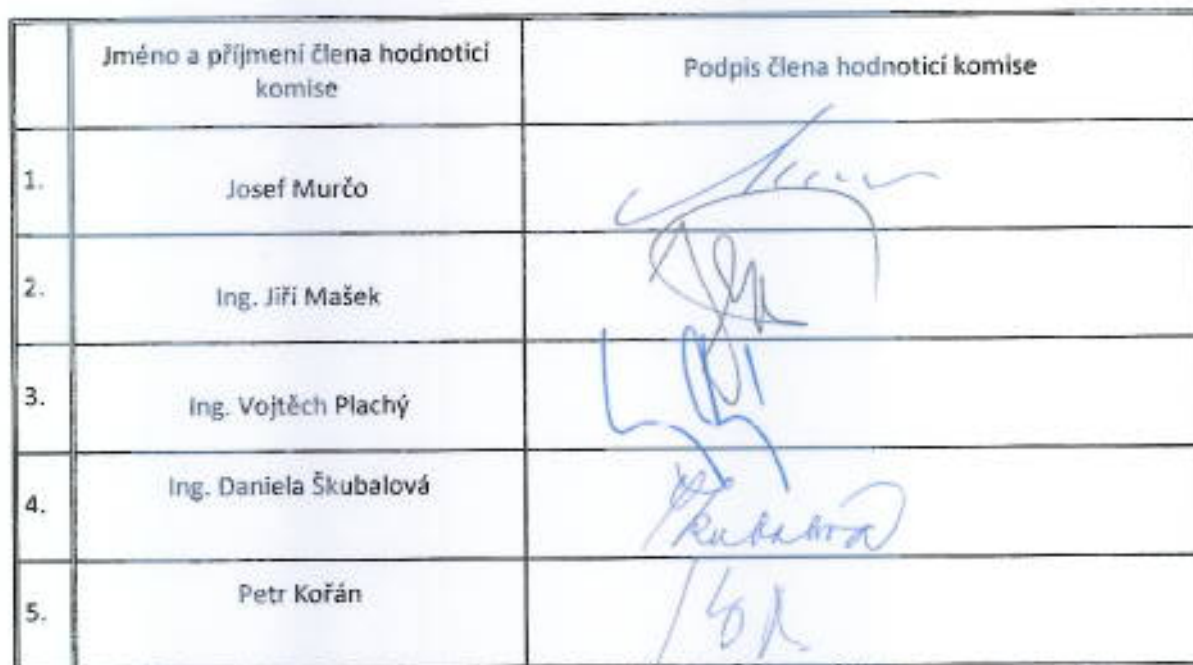 Jméno a příjmení člena hodnoticí
komise
Podpis člena hodnoticí komise
1.
Josef Murčo
2.
Ing. Jiří Mašek
3.
Ing. Vojtěch Plachý
4.
Ing. Daniela Škubalová
Škubalová
5.
Petr Kořán